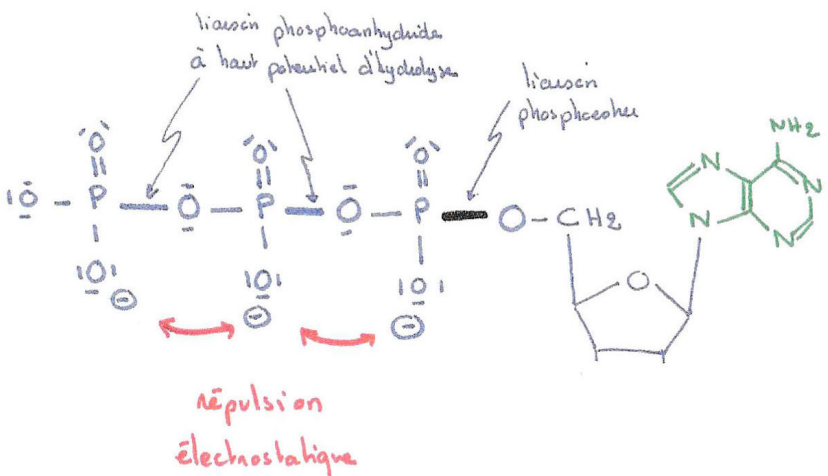 liaison phosphoanhydride
à haut potentiel d'hydrolyse
liaison
phosphoester
NH2
O O O
O P O P O P O-CH2
N N
O O O
N N
O
répulsion
électrostatique